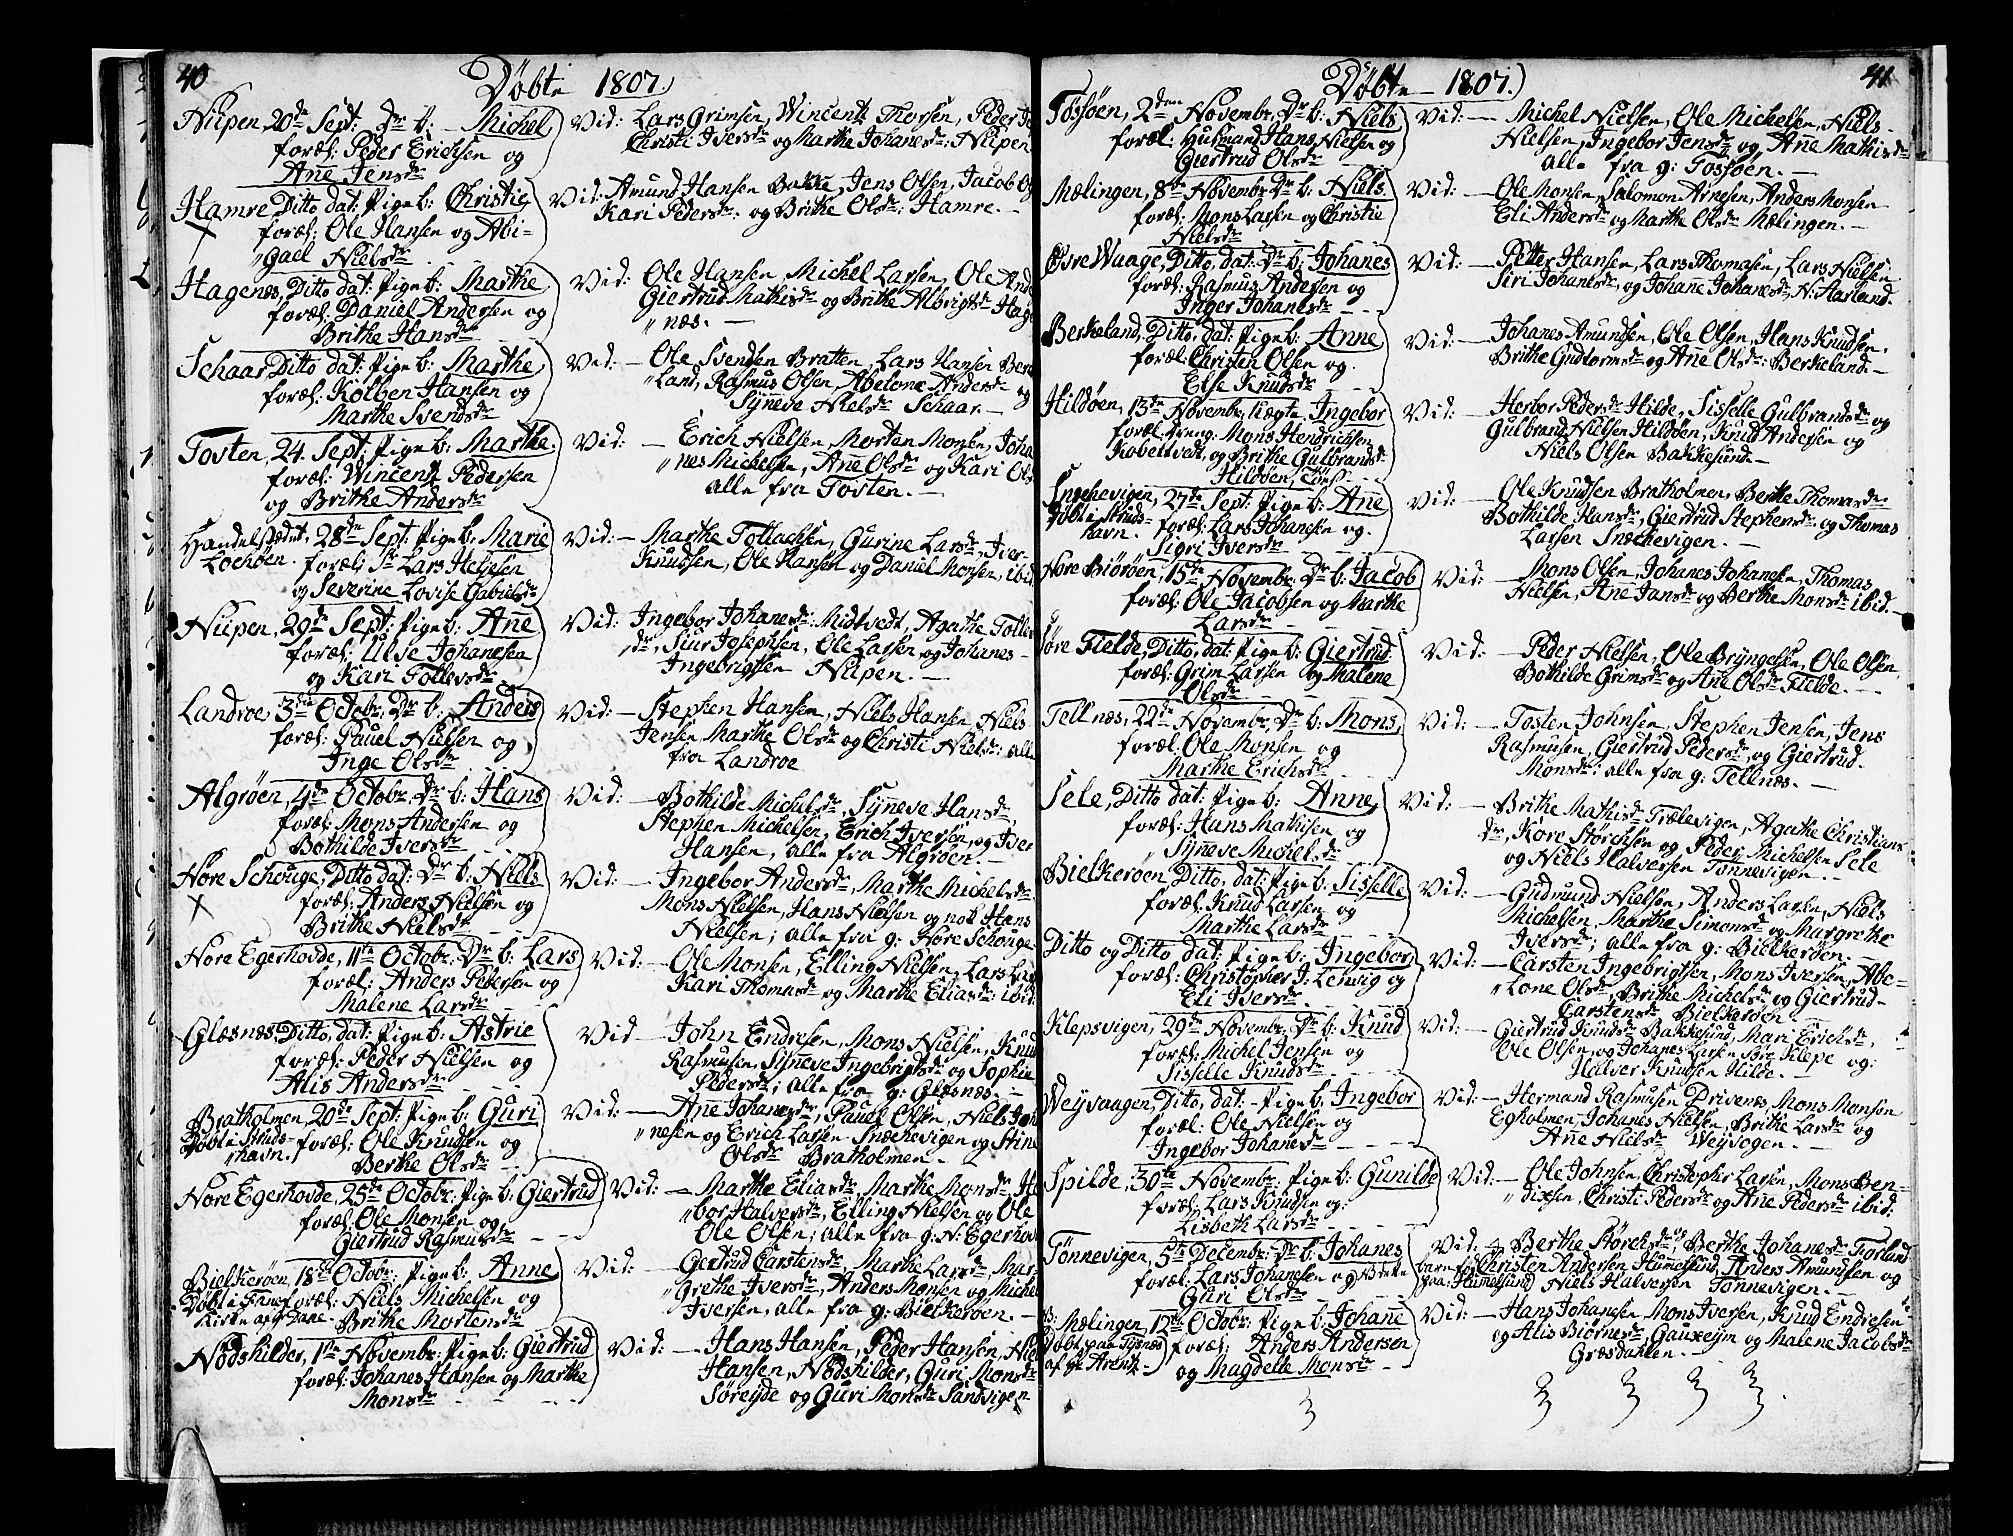 40
Döbte 1807.
Nipen, 20de Sept: Dr: b: Michel
foræl: Peder Erichsen og
Ane Jensdr
Vid: Lars Grimsen, Wincentz Thorsen, Peder
Christi Iversdr og Marthe Johanesdr: Nipen
Hamre Ditto dat: Pige b: Christie
foræl: Ole Hansen og Abi-
"gael Nielsdr
Vid: Amund Hansen Bakke, Jens Olsen, Jacob
Kari Pedersdr: og Brithe Olsdr: Hamre.
Hagenes, Ditto dat: Pige b: Marthe
foræl: Daniel Andersen og
Brithe Hansdr
Vid: Ole Hansen, Michel Larsen, Ole
Giertrud Mathisdr og Brithe Albrigtsdr Hage
"næs. —
Schaar, Ditto dat: Pige b: Marthe
foræl: Kolben Hansen og
Marthe Svendsdr
Vid: — Ole Svendsen Bratten, Lars Hansen
"Land, Rasmus Olsen, Abelone Andersdr og
Syneve Nielsdr Schaar. —
Tosten, 24. Sept: Pige b: Marthe
foræl: Wincentz Pedersen
og Brithe Andersdr
Vid: — Erich Nielsen Morten Monsen, Joha
"nes Michelsen, Ane Olsdr og Kari
alle fra Tosten. —
Handelstædet, 28de Sept: Pige b: Marie
Lochøen. foræl: Sr Lars Heljesen
og Severine Lovise Gabrielsdr
Vid: — Marthe Tollachsen, Gurine Larsdr, Iver
Knudsen, Ole Hansen og Daniel Monsen, ibid
Nipen, 29de Sept: Pige b: Ane
foræl: Ulve Johanesen
og Kari Tollevsdr
Vid: Ingebor Johanesdr: Midtvedt, Agathe Toller
dr, Siur Josephsen, Ole Larsen og Johanes
Ingebrigtsen Nipen. —
Landroe, 3die Octobr, Dr b: Anders
foræl: Pauel Nielsen og
Inge Olsdr
Vid: — Stephen Hansen, Niels Hansen, Niels
Jensen, Marthe Olsdr og Christi Nielsdr: alle
fra Landroe
Algröen, 4de Octobr, Dr: b: Hans
foræl: Mons Andersen og
Bothilde Iversdr
Vid: — Bothilde Michelsdr, Syneve Hansdr,
Stephen Michelsen, Erich Iversen, og Iver
Hansen, alle fra Algröen. —
Nore Schouge, Ditto dat: Dr b: Niels
foræl: Anders Nielsen og
Brithe Nielsdr
Vid: — Ingebor Andersdr, Marthe Michelsdr
Mons Nielsen, Hans Nielsen og nok Hans
Nielsen; alle fra g: Nore Schouge
Nore Egerhovde, 11te Octobr, Dr b: Lars
foræl: Anders Pedersen og
Malene Larsdr
Vid: — Ole Monsen, Elling Nielsen, Lars
Kari Thomasdr og Marthe Eliasdr: ibid
Glæsnæs, Ditto, dat: Pige b: Astrie
foræl: Peder Nielsen og
Alis Andersdr
Vid — John Endresen, Mons Nielsen, Knud
Rasmusen, Syneve Ingebrigtsdr og Sophie
Pedersdr; alle fra g: Glæsnæs. —
Bratholmen, 20de Sept: Pige b: Guri
Döbt i Struds- foræl: Ole Knudsen og
"havn. Berthe Olsdr
Vid: — Ane Johanesdr, Pauel Olsen, Niels
"nesen og Erich Larsen Snækevigen og Stine
Olsdr Bratholmen. —
Nore Egerhovde, 25de Octobr: Pige b: Giertrud
foræl: Ole Monsen og
Giertrud Rasmusdr
Vid: — Marthe Eliasdr, Marthe Monsdr
"bor Halversdr, Elling Nielsen og Ole
Ole Olsen; alle fra g: N: Egerhovde
Bielkeröen, 18de Octobr: Pige b: Anne
Döbt i Fane foræl: Niels Michelsen og
Kirke Brithe Mortensdr
Vid: — Giertrud Carstensdr, Marthe Larsdr, Mar-
"grethe Iversdr, Anders Monsen og Michel
Iversen, alle fra g: Bielkeröen. —
Nödshilder, 1ste Novembr: Pige b: Giertrud
foræl: Johanes Hansen og Marthe
Monsdr
Vid: — Hans Hansen, Peder Hansen, Niels
Hansen, Nödshilder, Guri Monsdr
Söreyde og Guri Monsdr Sandvigen
41
Döbte — 1807.
Tofsöen, 2den Novembr, Dr b: Niels
foræl: Husmand Hans Nielsen og
Giertrud Olsdr
Vid: — Michel Nielsen, Ole Michelsen, Niels
Nielsen, Ingebor Jensdr og Ane Mathisdr
alle fra g: Tofsöen. —
Mælingen, 8de Novembr Dr b: Niels
foræl: Mons Larsen og Christie
Nielsdr
Vid: — Ole Monsen, Salomon Arnesen, Anders Monsen
Eli Andersdr og Marthe Olsdr Mælingen. —
Övre Waage, Ditto, dat: Dr b: Johanes
foræl: Rasmus Andersen og
Inger Johanesdr
Vid: — Petter Hansen, Lars Thomasen, Lars Nielsen
Siri Johanesdr, og Johane Johanesdr, N: Aarland.
Berkeland, Ditto, dat: Pige b: Anne
foræl: Christen Olsen og
Else Knudsdr
Vid: — Johanes Amundsen, Ole Olsen, Hans Knudsen.
Brithe Gudtormsdr og Ane Olsdr: Berkeland. —
Hildöen, 13de Novembr, Uægte Ingebor
foræl: dreng: Mons Hendrichsen
Kobeltvedt, og Brithe Gulbrandsdr
Hildöen,
Vid: — Herbor Pedersdr Hilde, Sisselle Gulbrandsdr og
Gulbrand Nielsen Hildöen, Knud Andersen og
Niels Olsen Bakkesund. —
Snechevigen, 27de Sept: Pige b: Ane
Döbt i Struds- foræl: Lars Johanesen og
havn. Sigri Iversdr
Vid: — Ole Knudsen Bratholmen, Berthe Thomasdr
Bothilde Hansdr, Giertrud Stephensdr og Thomas
Larsen Snechevigen. —
Nore Biöröen, 15de Novembr: Dr b: Jacob
foræl: Ole Jacobsen og Marthe
Larsdr
Vid: — Mons Olsen, Johanes Johanesen, Thomas
Nielsen, Ane Jansdr og Berthe Monsdr ibid. —
Söre Fielde, Ditto, dat: Pige b: Giertrud
foræl: Grim Larsen og Malene
Olsdr
Vid: — Peder Nielsen, Ole Bryngelsen, Ole Olsen,
Bothilde Grimsdr og Ane Olsdr Fielde. —
Tellnæs, 22de Novembr, Dr b: Mons
foræl: Ole Monsen og
Marthe Erichsdr
Vid: — Tosten Johnsen, Stephen Jensen, Jens
Rasmusen, Giertrud Pedersdr, og Giertrud
Monsdr: alle fra g: Tellnæs. —
Sele, Ditto dat: Pige b: Anne
foræl: Hans Mathisen og
"Syneve Michelsdr
Vid: — Brithe Mathisdr Trælevigen, Agathe Christians
dr, Kore Störchsen og Peder Michelsen Sele
og Niels Halversen Tönnevigen. —
Bielkeröen Ditto, dat: Pige b: Sisselle
foræl: Knud Larsen og
Marthe Larsdr
Vid: — Gudmund Nielsen, Anders Larsen, Niels
Michelsen, Marthe Simonsdr og Margrethe
Iversdr; alle fra g: Bielkeröen. —
Ditto og Ditto dat: Pige b: Ingebor
foræl: Christopher J: Lervig og
Eli Iversdr.
Vid: — Carsten Ingebrigtsen, Mons Iversen, Abe-
"lone Olsdr, Brithe Michelsdr og Giertrud
Carstensdr Bielkeröen. —
Klepsvigen, 29de Novembr: Dr b: Knud
foræl: Michel Jensen og
Sisselle Knudsdr
Vid: — Giertrud Knudsdr Bakkesund, Mari Erichsdr,
Ole Olsen, og Johanes Larsen Klepe og
Halver Knudsen Hilde. —
Weyvaagen, Ditto, dat: — Pige b: Ingebor
foræl: Ole Nielsen og
Ingebor Johanesdr
Vid: — Hermand Rasmusen Drivenæs, Mons Monsen
Egholmen, Johanes Nielsen, Brithe Larsdr og
Ane Nielsdr Weyvogen. —
Spilde, 30te Novembr: Pige b: Gunilde
foræl: Lars Knudsen og
Lisbeth Larsdr
Vid: — Ole Johnsen, Christopher Larsen, Mons Ben-
"dixsen, Christi Pedersdr og Ane Pedersdr ibid.
Tönnevigen, 5te Decembr: Dr b: Johanes
foræl: Lars Johanesen og
Guri Olsdr
Vid: Berthe Störchsdr, Berthe Johanesdr Forland
Christen Andersen Humelsund, Anders Amundsen og
paa Humelsund Niels Halversen Tönnevigen. —
B: Mælingen, 12te Octobr: Pige b: Johane
Döbt paa Tysnæs foræl: Anders Andersen
af Hr Arentz og Magdelle Monsdr
Vid: — Hans Johanesen, Mons Iversen, Knud Endresen
og Alis Biörnesdr, Gauxeym og Malene Jacobsdr
Græsdahlen. —